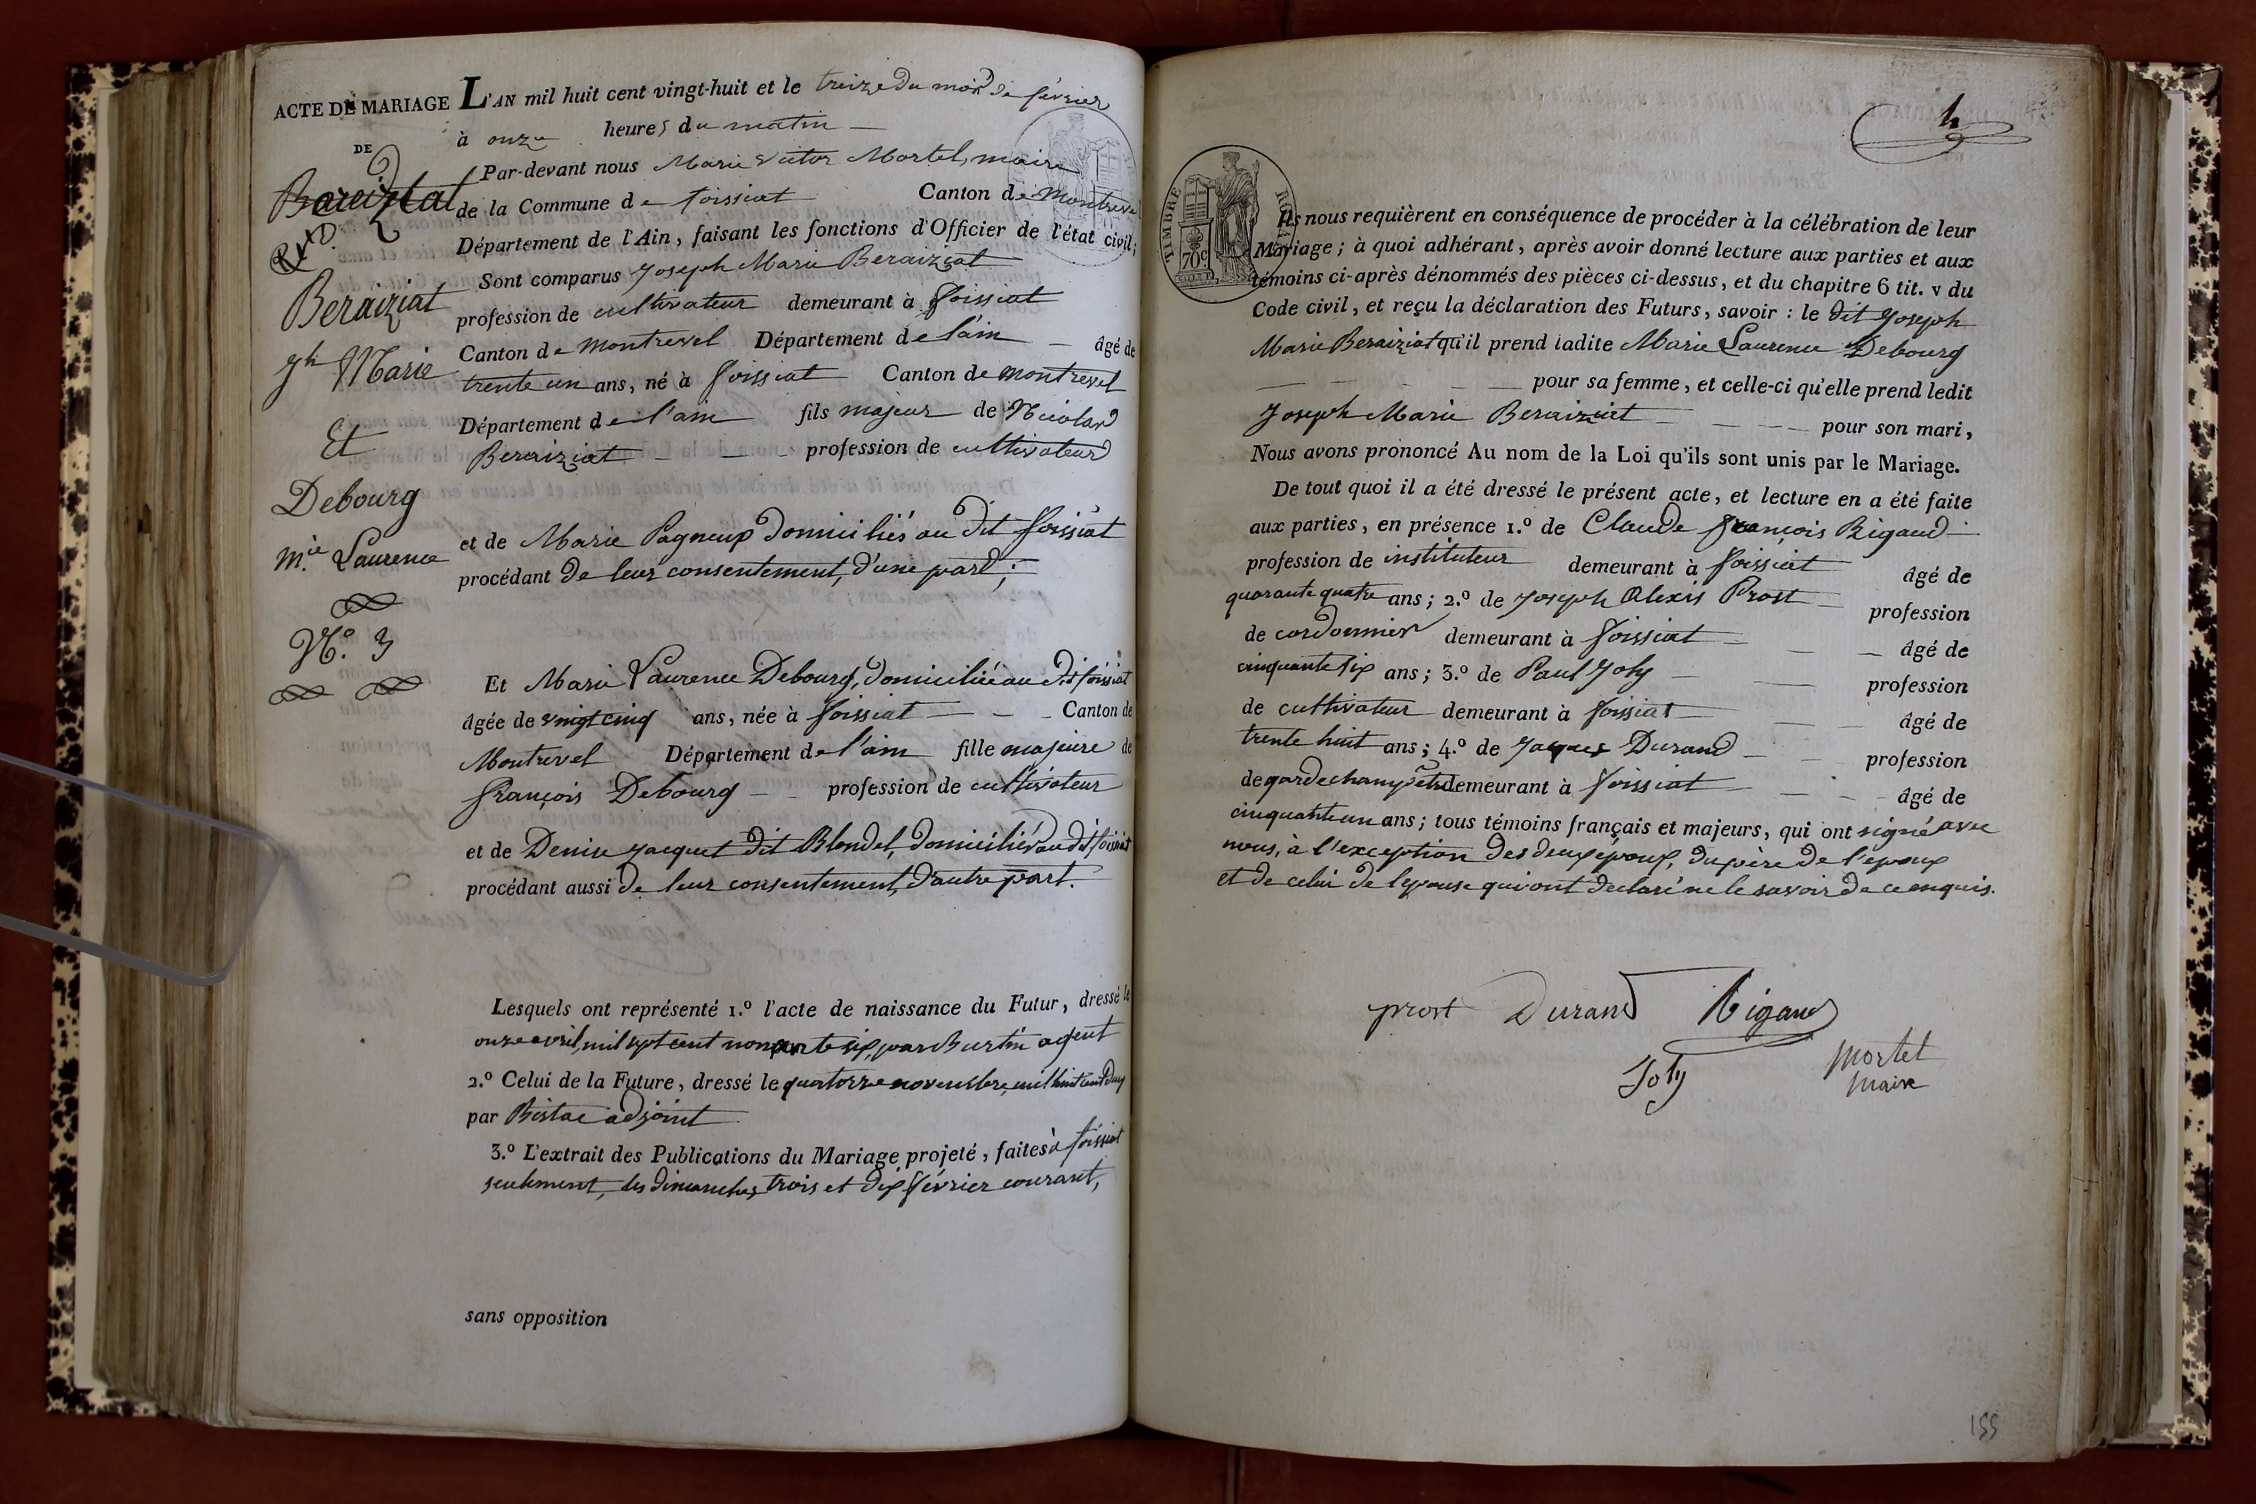 ACTE DE MARIAGE
DE
Beraiziat
Beraiziat
Jh Marie
Et
Debourg
Mie Laurence
N.° 3
L'AN mil huit cent vingt-huit et le treize du mois de février
à onze heures du matin
Par-devant nous Marie Victor Mortel, maire
de la Commune de foissiat Canton de Montrevel
Département de l'Ain, faisant les fonctions d'Officier de l'état civil;
Sont comparus Joseph Marie Beraiziat
profession de cultivateur demeurant à foissiat
Canton de Montrevel Département de l'ain âgé de
trente un ans, né à foissiat Canton de montrevel
Département de l'ain fils majeur de Nicolas
Beraiziat profession de cultivateur
et de Marie Pagneux domiciliés au dit foissiat
procédant de leur consentement, d'une part;
Et Marie Laurence Debourg, domiciliée au dit foissiat
âgée de vingt cinq ans, née à foissiat Canton de
Montrevel Département de l'ain fille majeure de
françois Debourg profession de cultivateur
et de Denise Jacquet dit Blondel, domiciliés au dit foissiat
procédant aussi de leur consentement, d'autre part.
Lesquels ont représenté 1.° l'acte de naissance du Futur, dressé le
onze avril, mil sept cent nonante six, par Burtin agent
2.° Celui de la Future, dressé le quatorze novembre, mil huit cent deux
par adjoint
3.° L'extrait des Publications du Mariage projeté, faites à foissiat
seulement, les dimanches trois et dix février courant,
sans opposition
h
TIMBRE ROYAL
70c
Ils nous requièrent en conséquence de procéder à la célébration de leur
Mariage; à quoi adhérant, après avoir donné lecture aux parties et aux
témoins ci-après dénommés des pièces ci-dessus, et du chapitre 6 tit. v du
Code civil, et reçu la déclaration des Futurs, savoir : le dit Joseph
Marie Beraiziat qu'il prend ladite Marie Laurence Debourg
pour sa femme, et celle-ci qu'elle prend ledit
Joseph Marie Beraiziat pour son mari,
Nous avons prononcé Au nom de la Loi qu'ils sont unis par le Mariage.
De tout quoi il a été dressé le présent acte, et lecture en a été faite
aux parties, en présence 1.° de Claude françois Rigaud
profession de instituteur demeurant à foissiat âgé de
quarante quatre ans; 2.° de Joseph Alexis Prost profession
de cordonnier demeurant à foissiat âgé de
cinquante six ans; 3.° de Paul Joly profession
de cultivateur demeurant à foissiat âgé de
trente huit ans; 4.° de Jacques Durand profession
de garde champêtre demeurant à foissiat âgé de
cinquante un ans; tous témoins français et majeurs, qui ont signé avec
nous, à l'exception des deux époux, du père de l'époux
et de celui de l'épouse qui ont déclaré ne le savoir de ce enquis.
prost Durand Rigaud
Joly
Mortel
maire
155